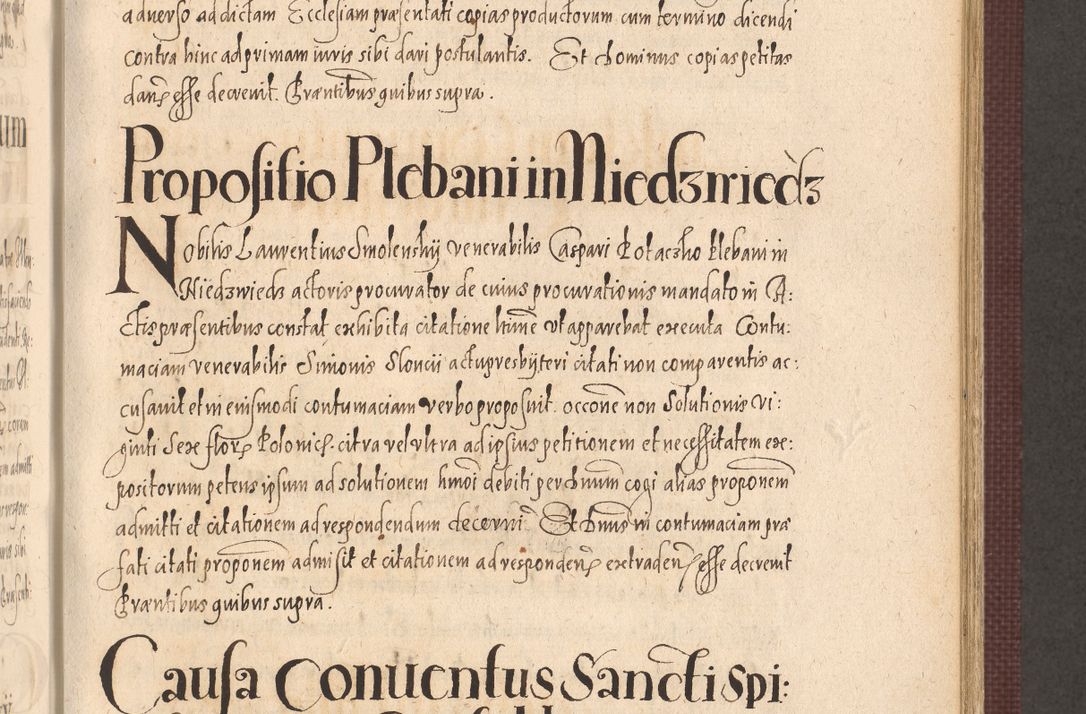 aduerso addictam Ecclesiam præsentati copias productorum cum termino dicendi
contra hinc ad primam iuris sibi dari postulantis. Et Dominus copias petitas
dand esse decreuit. Præntibus quibus supra.
Propositio Plebani in Niedzwiedz
Nobilis Laurentius Smolenskij venerabilis Caspari Plebani in
Niedzwiedz actoris procurator de cuius procurationis mandato in A:
ctis præsentibus constat exhibita citatione ltime vt apparebat executa Contu:
maciam venerabilis Simonis Sloncii actu presbijteri citati non comparentis ac:
cusauit et in eiusmodi contumaciam verbo proposuit occone non Solutionis vi:
ginti Sex flor Polonic. citra vel vltra ad ipsius petitionem et necessitatem ex:
positorum petens ipsum ad solutionem hmoi debiti per dnum cogi alias proponem
admitti et citationem ad respondendum decerni. Et dnus in contumaciam præ
fati citati proponem admisit et citationem ad responden extraden esse decreuit
Præntibus quibus supra.
Causa Conuentus Sancti Spi: